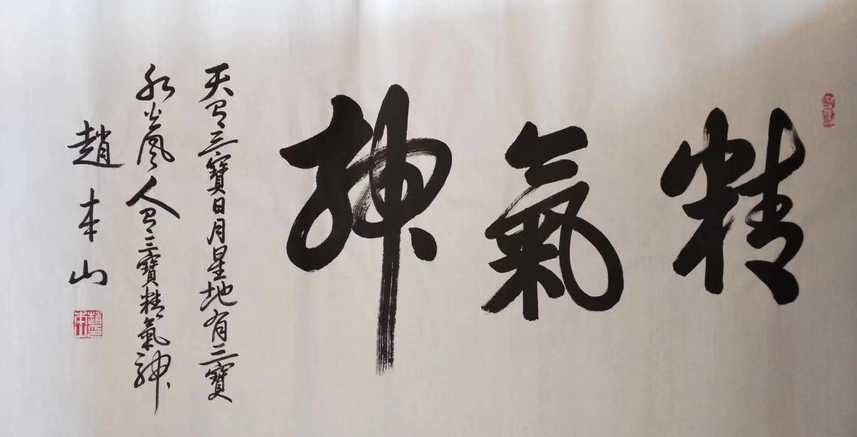 精氣神
天有三寶日月星地有三寶
水火風人有三寶精氣神
趙本山